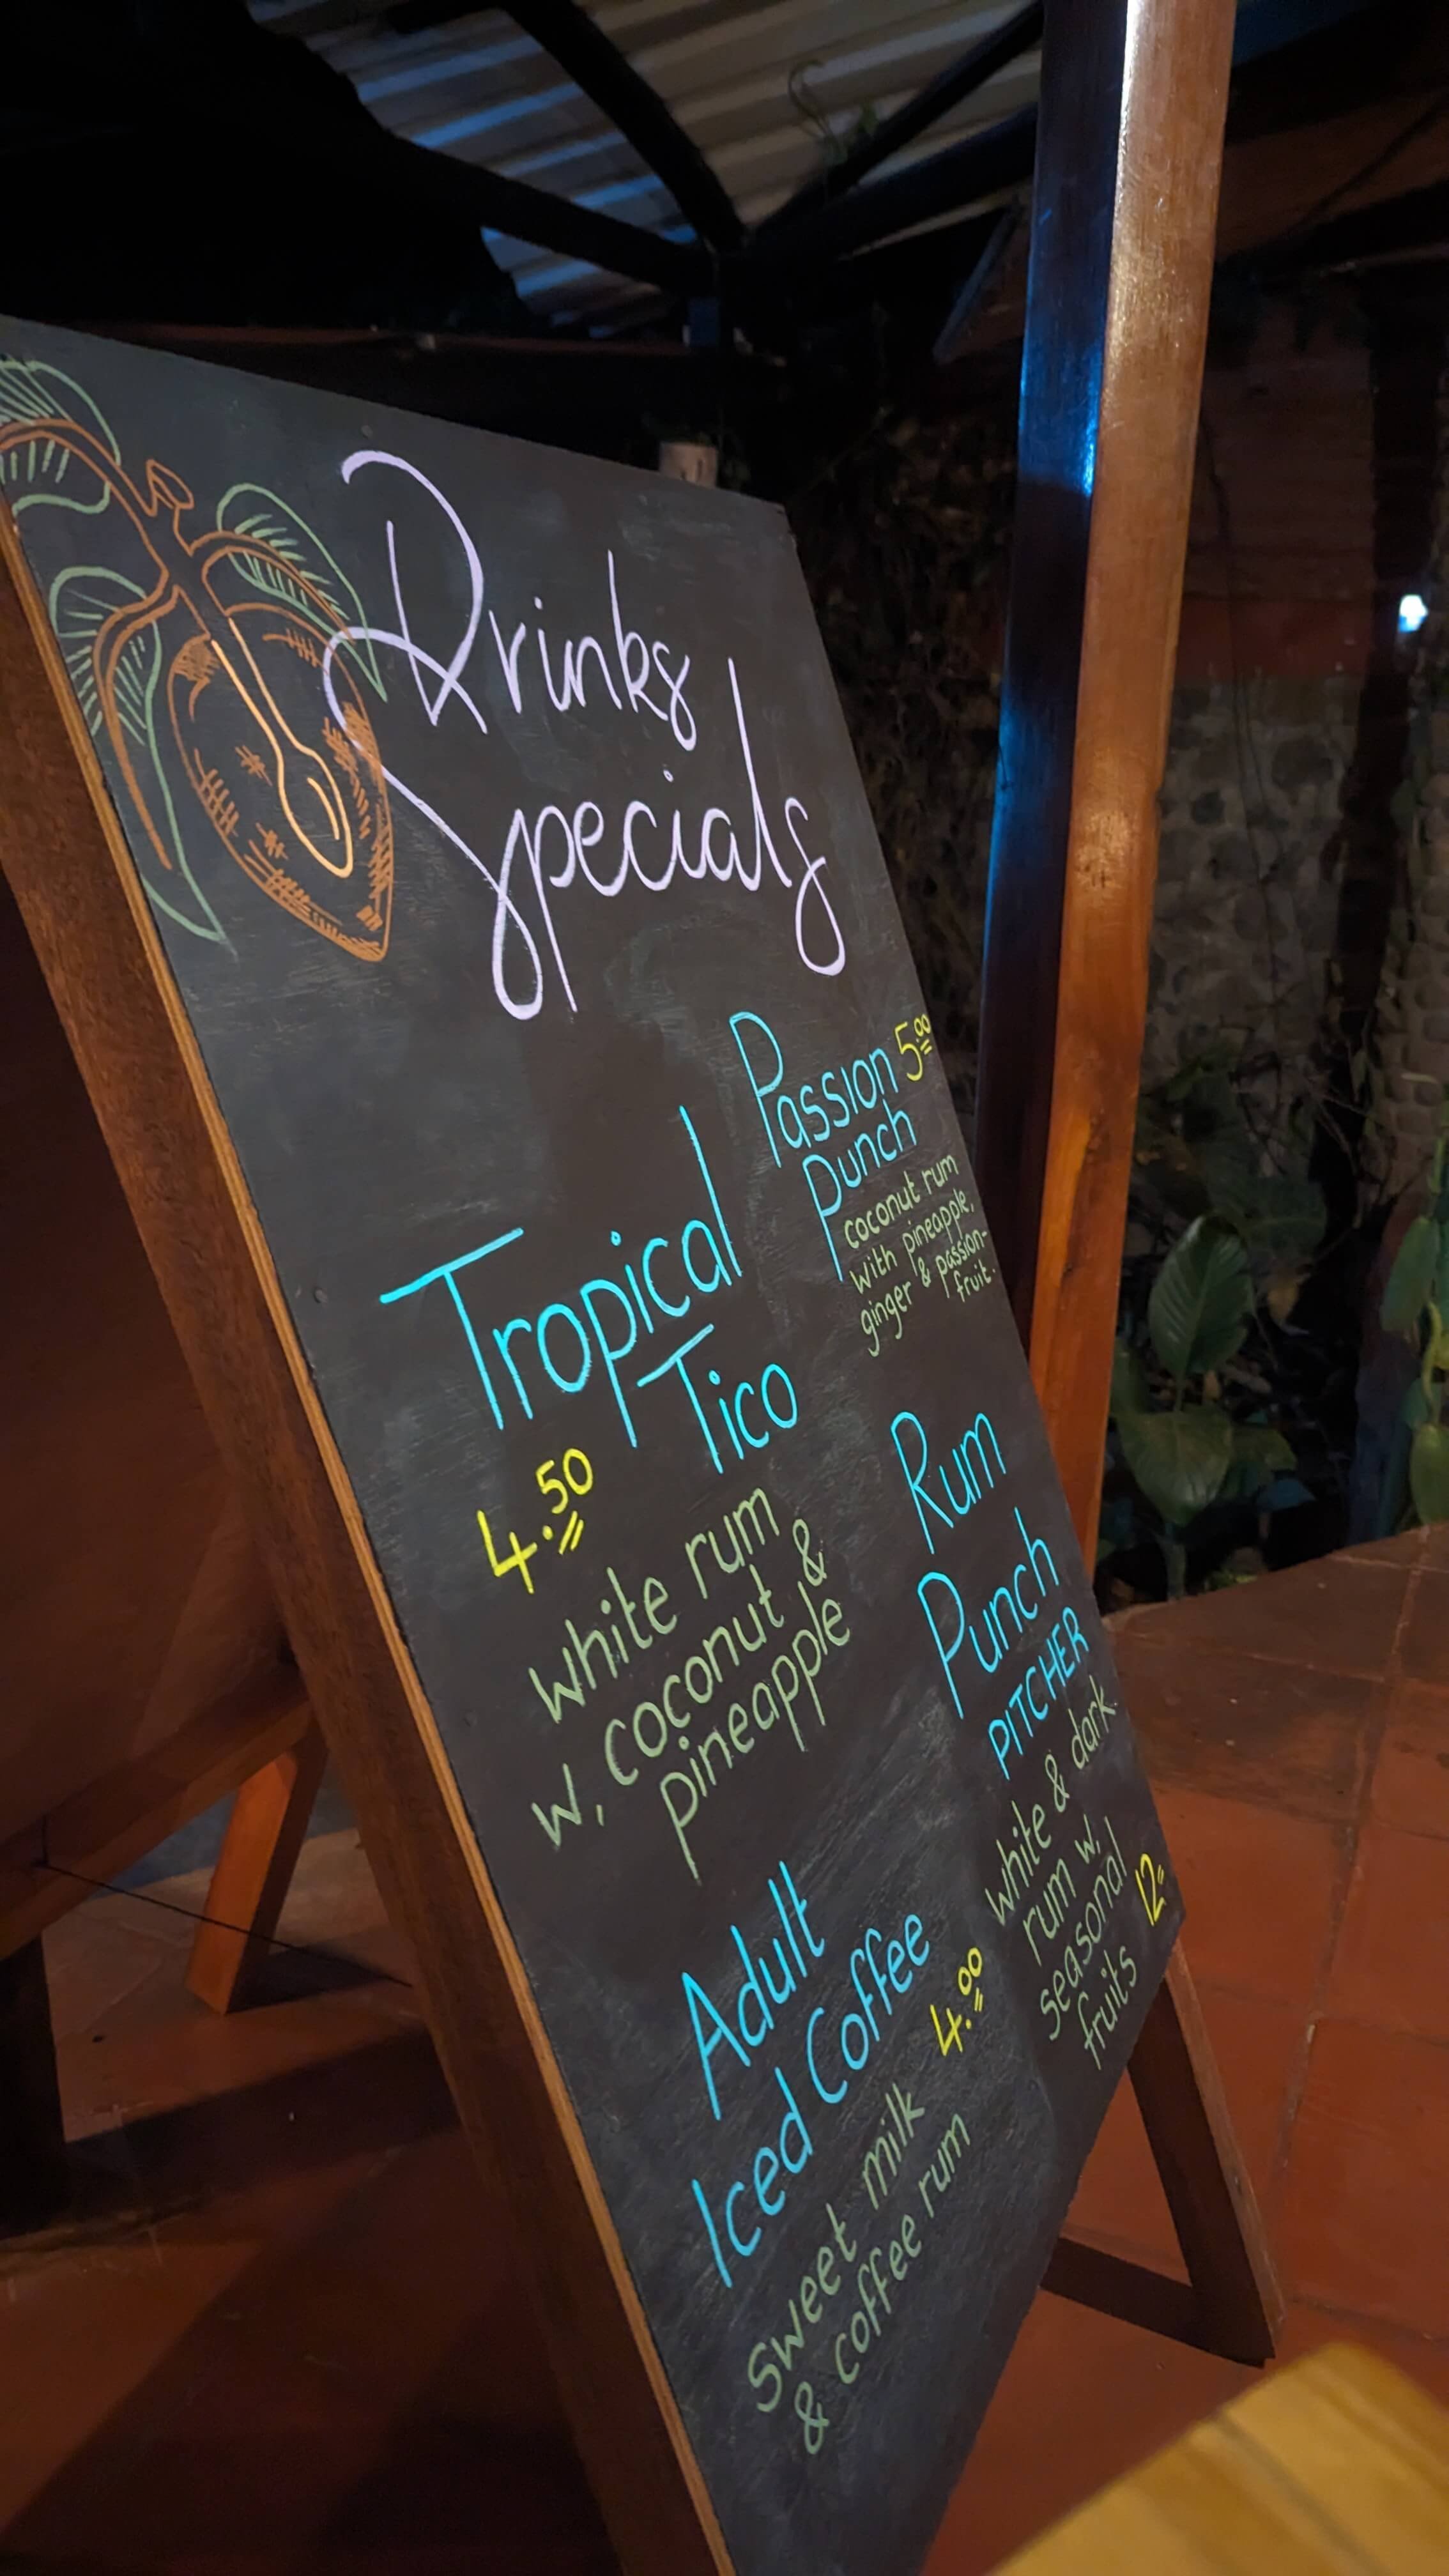 Drinks
Specials
Tropical
Tico
4.50
white rum
w, coconut &
pineapple
Adult
Iced Coffee
4.00
sweet milk
& coffee rum
Passion 5.00
Punch
coconut rum
with pineapple,
ginger & passion-
fruit.
Rum
Punch
PITCHER
white & dark
rum w,
seasonal
fruits
12